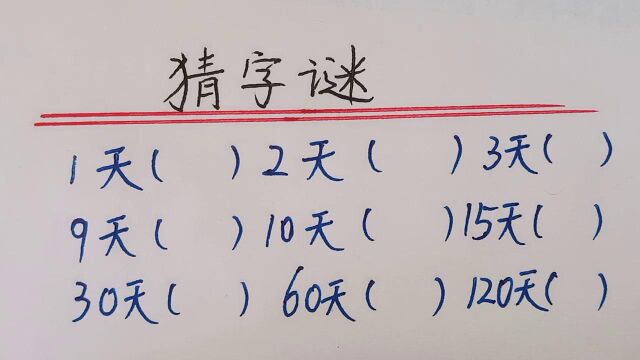 猜字谜
1天( ) 2天( ) 3天( )
9天( ) 10天( ) 15天( )
30天( ) 60天( ) 120天( )